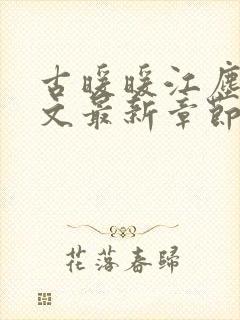 古暖暖江尘
文最新章節
花落春歸